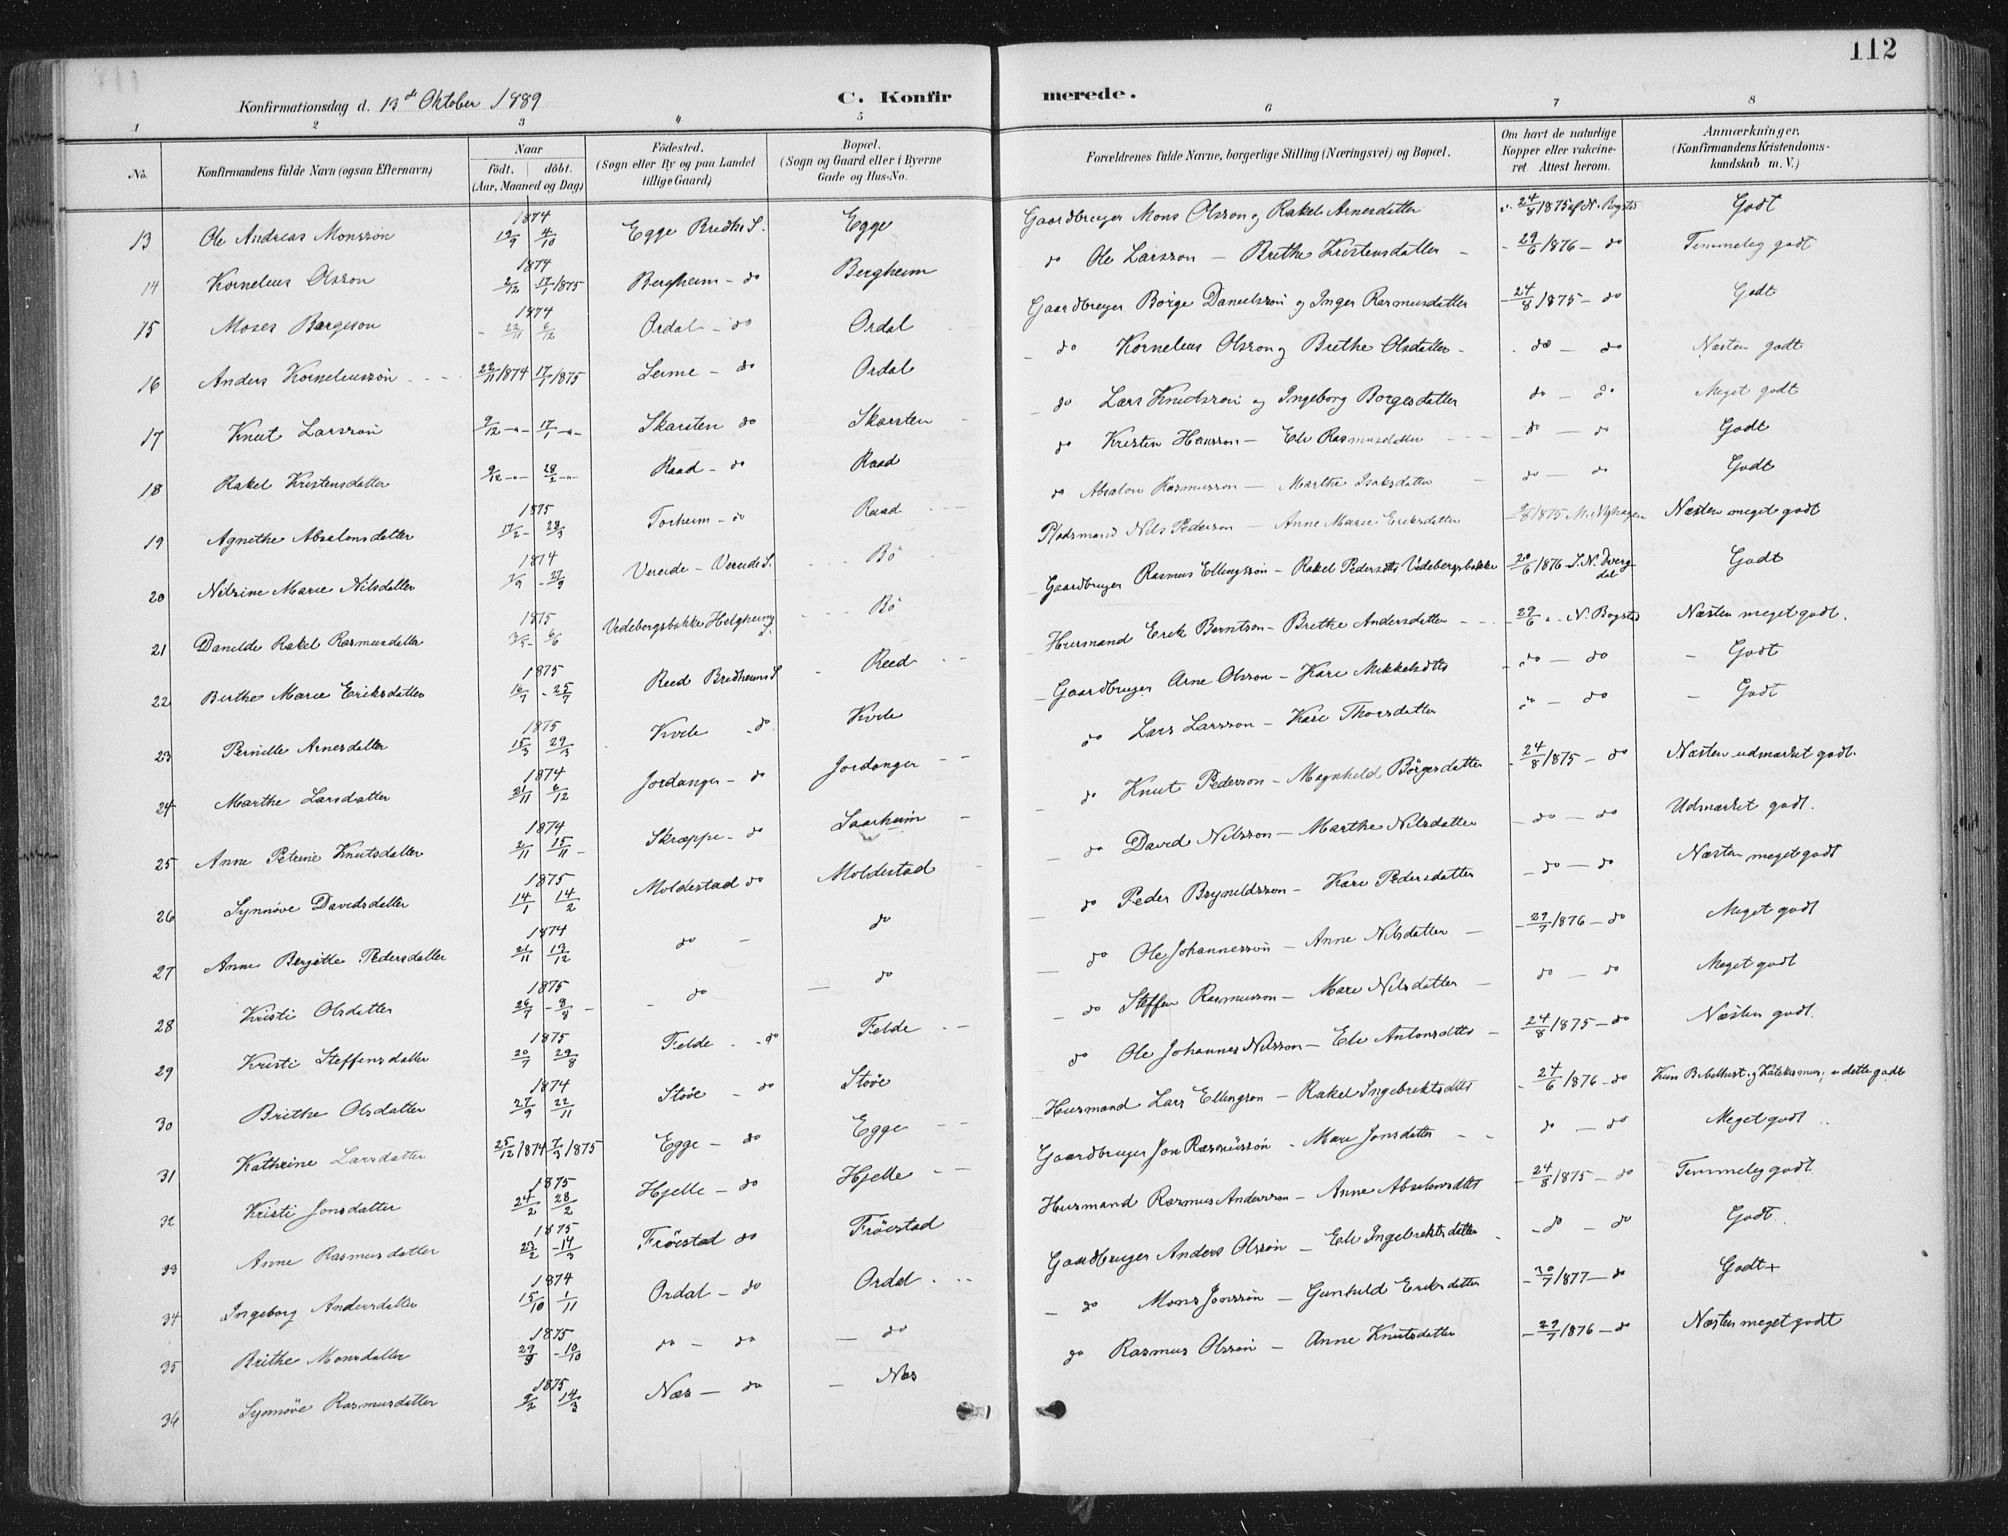 112
Konfirmationsdag d. 13de Oktober 1889 C. Konfirmerede.
1 2 3 4 5 6 7 8
No. Konfirmandens fulde Navn (ogsaa Efternavn) Naar födt. döbt. (Aar, Maaned og Dag) Födested. (Sogn eller By og paa Landet tillige Gaard) Bopæl. (Sogn og Gaard eller i Byerne Gade og Hus-No. Forældrenes fulde Navne, borgerlige Stilling (Næringsvei) og Bopæl. Om havt de naturlige Kopper eller vakcineret Attest herom. Anmærkninger. (Konfirmandens Kristendomskundskab m. V.)
13 Ole Andreas Monssön 1874 4/10 Egge Bredhs S. Egge Gaardbruger Mons Olsson og Rakel Arnesdatter 24/8 1875 af N. Bogsted Godt
14 Kornelius Olsson 1874 2/12 17/1 1875 Bergheim - do Bergheim do Ole Larsson - Brethe Kristensdatter - 29/6 1876 - do Temmelig godt
15 Moses Børgeson 1874 6/12 Ordal - do Ordal Gaardbruger Börge Danielssön og Inger Rasmusdatter - 24/8 1875 - do Godt
16 Anders Korneliussön 22/11 1874 17/1 1875 Lerme - do Ordal - do Kornelius Olsson og Brethe Olsdatter - do - do Næsten godt
17 Knut Larssön 9/12 -"- 17/1 -"- Skarsten do Skarsten - do Lars Knudssön og Ingeborg Borgesdatter do - do Meget godt
18 Rakel Kristensdatter 9/12 -"- 28/2 -"- Raad - do Raad do Kristen Hansson - Eli Rasmusdatter - do - do Godt
19 Agnethe Absalonsdatter 1875 17/2 - 28/3 Torheim - do Raad do Absalon Rasmusson - Marthe Isaksdatter do - do Godt
20 Nilsine Marie Nilsdatter 1874 7/9 - 27/9 Vereide - Vereide S. Bö Pladsmand Nils Pederson - Anne Marie Eriksdatter 1875 M. Myhagen Næsten meget godt
21 Danilde Rakel Rasmusdatter 1875 3/5 - 6/6 Vedebergsbakke Helgheim S. Bö Gaardbruger Rasmus Ellingssön - Rakel Pedersdtr Vedebergsbakke 20/6 1876 - S. N. Dvergdal Godt
22 Berthe Marie Eriksdatter 1875 16/7 - 25/7 Reed Bredheims S Reed - Husmand Erik Berntson - Brethe Andersdatter 29/6 " - N. Bogsted Næsten meget godt.
23 Pernille Arnesdatter 1875 15/3 29/3 Kvile - do Kvile - Gaardbruger Arne Olsson - Kari Mikkelsdtr - do - do - Godt
24 Marthe Larsdatter 1874 21/11 6/12 Jordanger - do Jordanger - - do Lars Larsson - Kari Thorsdatter do - do - Godt
25 Anne Petrine Knutsdatter 1874 2/11 15/11 - Skræppe - do Saarheim - do Knut Pederson - Magnhild Börgesdatter - 24/8 1875 - do Næsten udmærket godt.
26 Synnöve Davidsdatter 1875 14/1 14/2 Moldestad do Moldestad - do David Nilsson - Marthe Nilsdatter - do - do Udmærket godt.
27 Anne Bergitte Pedersdatter 1874 21/11 13/12 do - do - do Peder Brynildsson - Kari Pedersdatter - do - do Næsten meget godt
28 Kristi Olsdatter 1875 26/7 - 8/8 - - do - do - do Ole Johannessön - Anne Nilsdatter - - 29/7 1876 - do Meget godt
29 Kristi Steffensdatter 1875 20/7 29/8 Felde - do Felde - - - do Steffen Rasmusson - Mari Nilsdatter - do - do Meget godt
30 Brithe Olsdatter 1874 27/9 22/11 Støve - do Støve do Ole Johannes Nilsson - Eli Antonsdtr - 24/8 1875 - do Næsten godt.
31 Kathrine Larsdatter 25/12 1874 7/3 1875 Egge - do Egge - - Husmand Lars Ellingson - Rakel Ingebrektsdtr - 24/6 1876 - do Kun Bibelhist. og Katekismus, i dette godt
32 Kristi Jonsdatter 1875 24/2 28/2 Hjelle - do Hjelle - - Gaardbruger Jon Rasmussön - Mari Jonsdatter - - do - do Meget godt
33 Anne Rasmusdatter 1875 - 14/3 Fröestad do Fröestad Husmand Rasmus Andersson - Anne Absalonsdtr - 24/8 1875 - do Temmelig godt.
34 Ingeborg Andersdatter 1874 15/10 1/11 Ordal - do Ordal Gaardbruger Anders Olssön - Eli Ingebrektsdatter - do - do Godt
35 Brithe Monsdatter 1875 29/9 - 10/10 do - do - do - do Mons Jonssön - Gunhild Eriksdatter - 30/7 1877 - do Godt+
36 Synnöve Rasmusdatter 1875 9/2 14/3 Næs - do - Næs do Rasmus Olssön - Anne Knutsdatter - 29/7 1876 - do Næsten meget godt